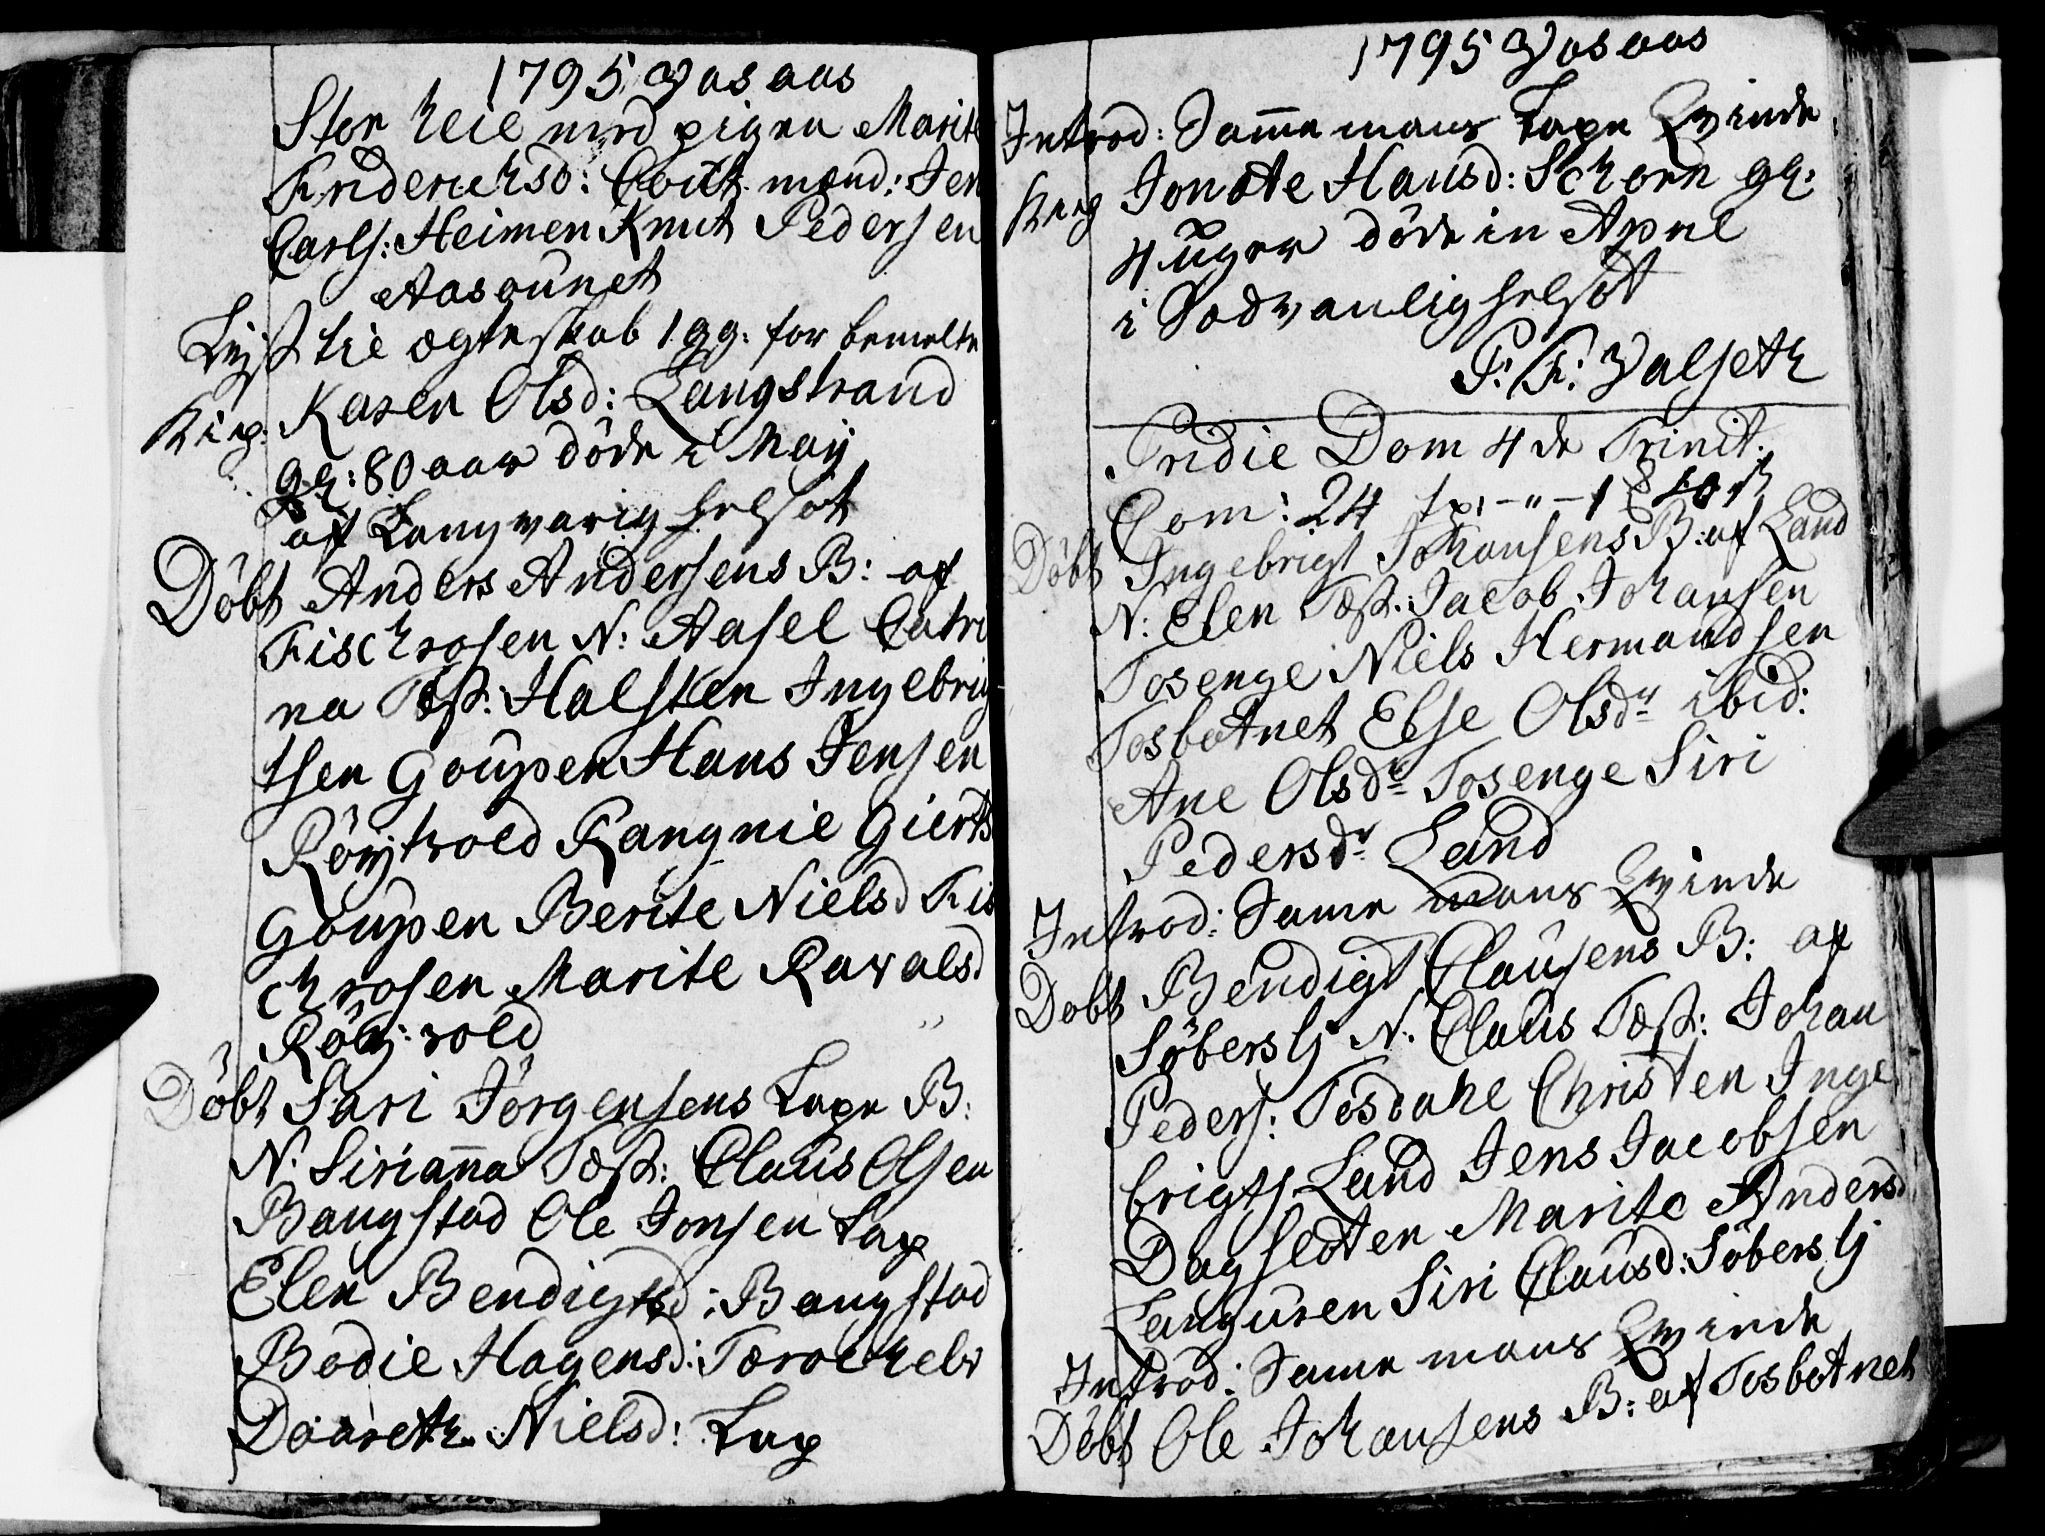 1795 Vasaas
Stor heie med pigen Marite
Friderichsd: Cout. mænd: Jen
Carls: Heimen Knut Pedersen
Aasaunet
Liyst tie ægteskab 1 gg: for bemelte
Karen Olsd: Langstrand
gl: 80 aar döde i Maij
af Langvarig helsot
Döbt Anders Andersens B: af
Fischrosen N: Aasel Catri
na Test: Halsten Ingebrig
tsen Goupen Hans Jensen
Röytvold Rangnie Gierts
Goupen Berite Nielsd Fis
chrosen Marite Ravalsd
Röy: vold
Döbt Sari Jörgensens Lapn B:
N. Sirianna Test: Claus Olsen
Bangstad Ole Jonsen Lap
Elen Bendigtsd: Bangstad
Bodie Hagensd:
Daareth. Nielsd: Lap
1795 Vasaas
Introd: Samme mans Lapn Qvinde
Jonate Hansd: Schorn gl:
4 uger döde in April
i Sædvanlig helsot
P: F: Valseth
Pridie Dom 4 de Trinit:
Com: 24
Döbt Ingebrigt Johansens B: af Land
N: Elen Test: Jacob Johansen
Tosenge Niels Hermandsen
Tosbotnet Else Olsdr ibid:
Ane Olsdr Tosenge Siri
Pedersdr Land
Introd: Samme mans Qvinde
Döbt Bendigt Clausens B: af
Söberslj N. Claus Test: Johan
Peders: Tosdahl Christen Inge
brigts Land Jens Jacobsen
Dagsloten Marite Andersd
Languren Siri Clausd: Söberslj
Introd: Samme mans Qvinde
Döbt Ole Johansens B: af Tosbotnet